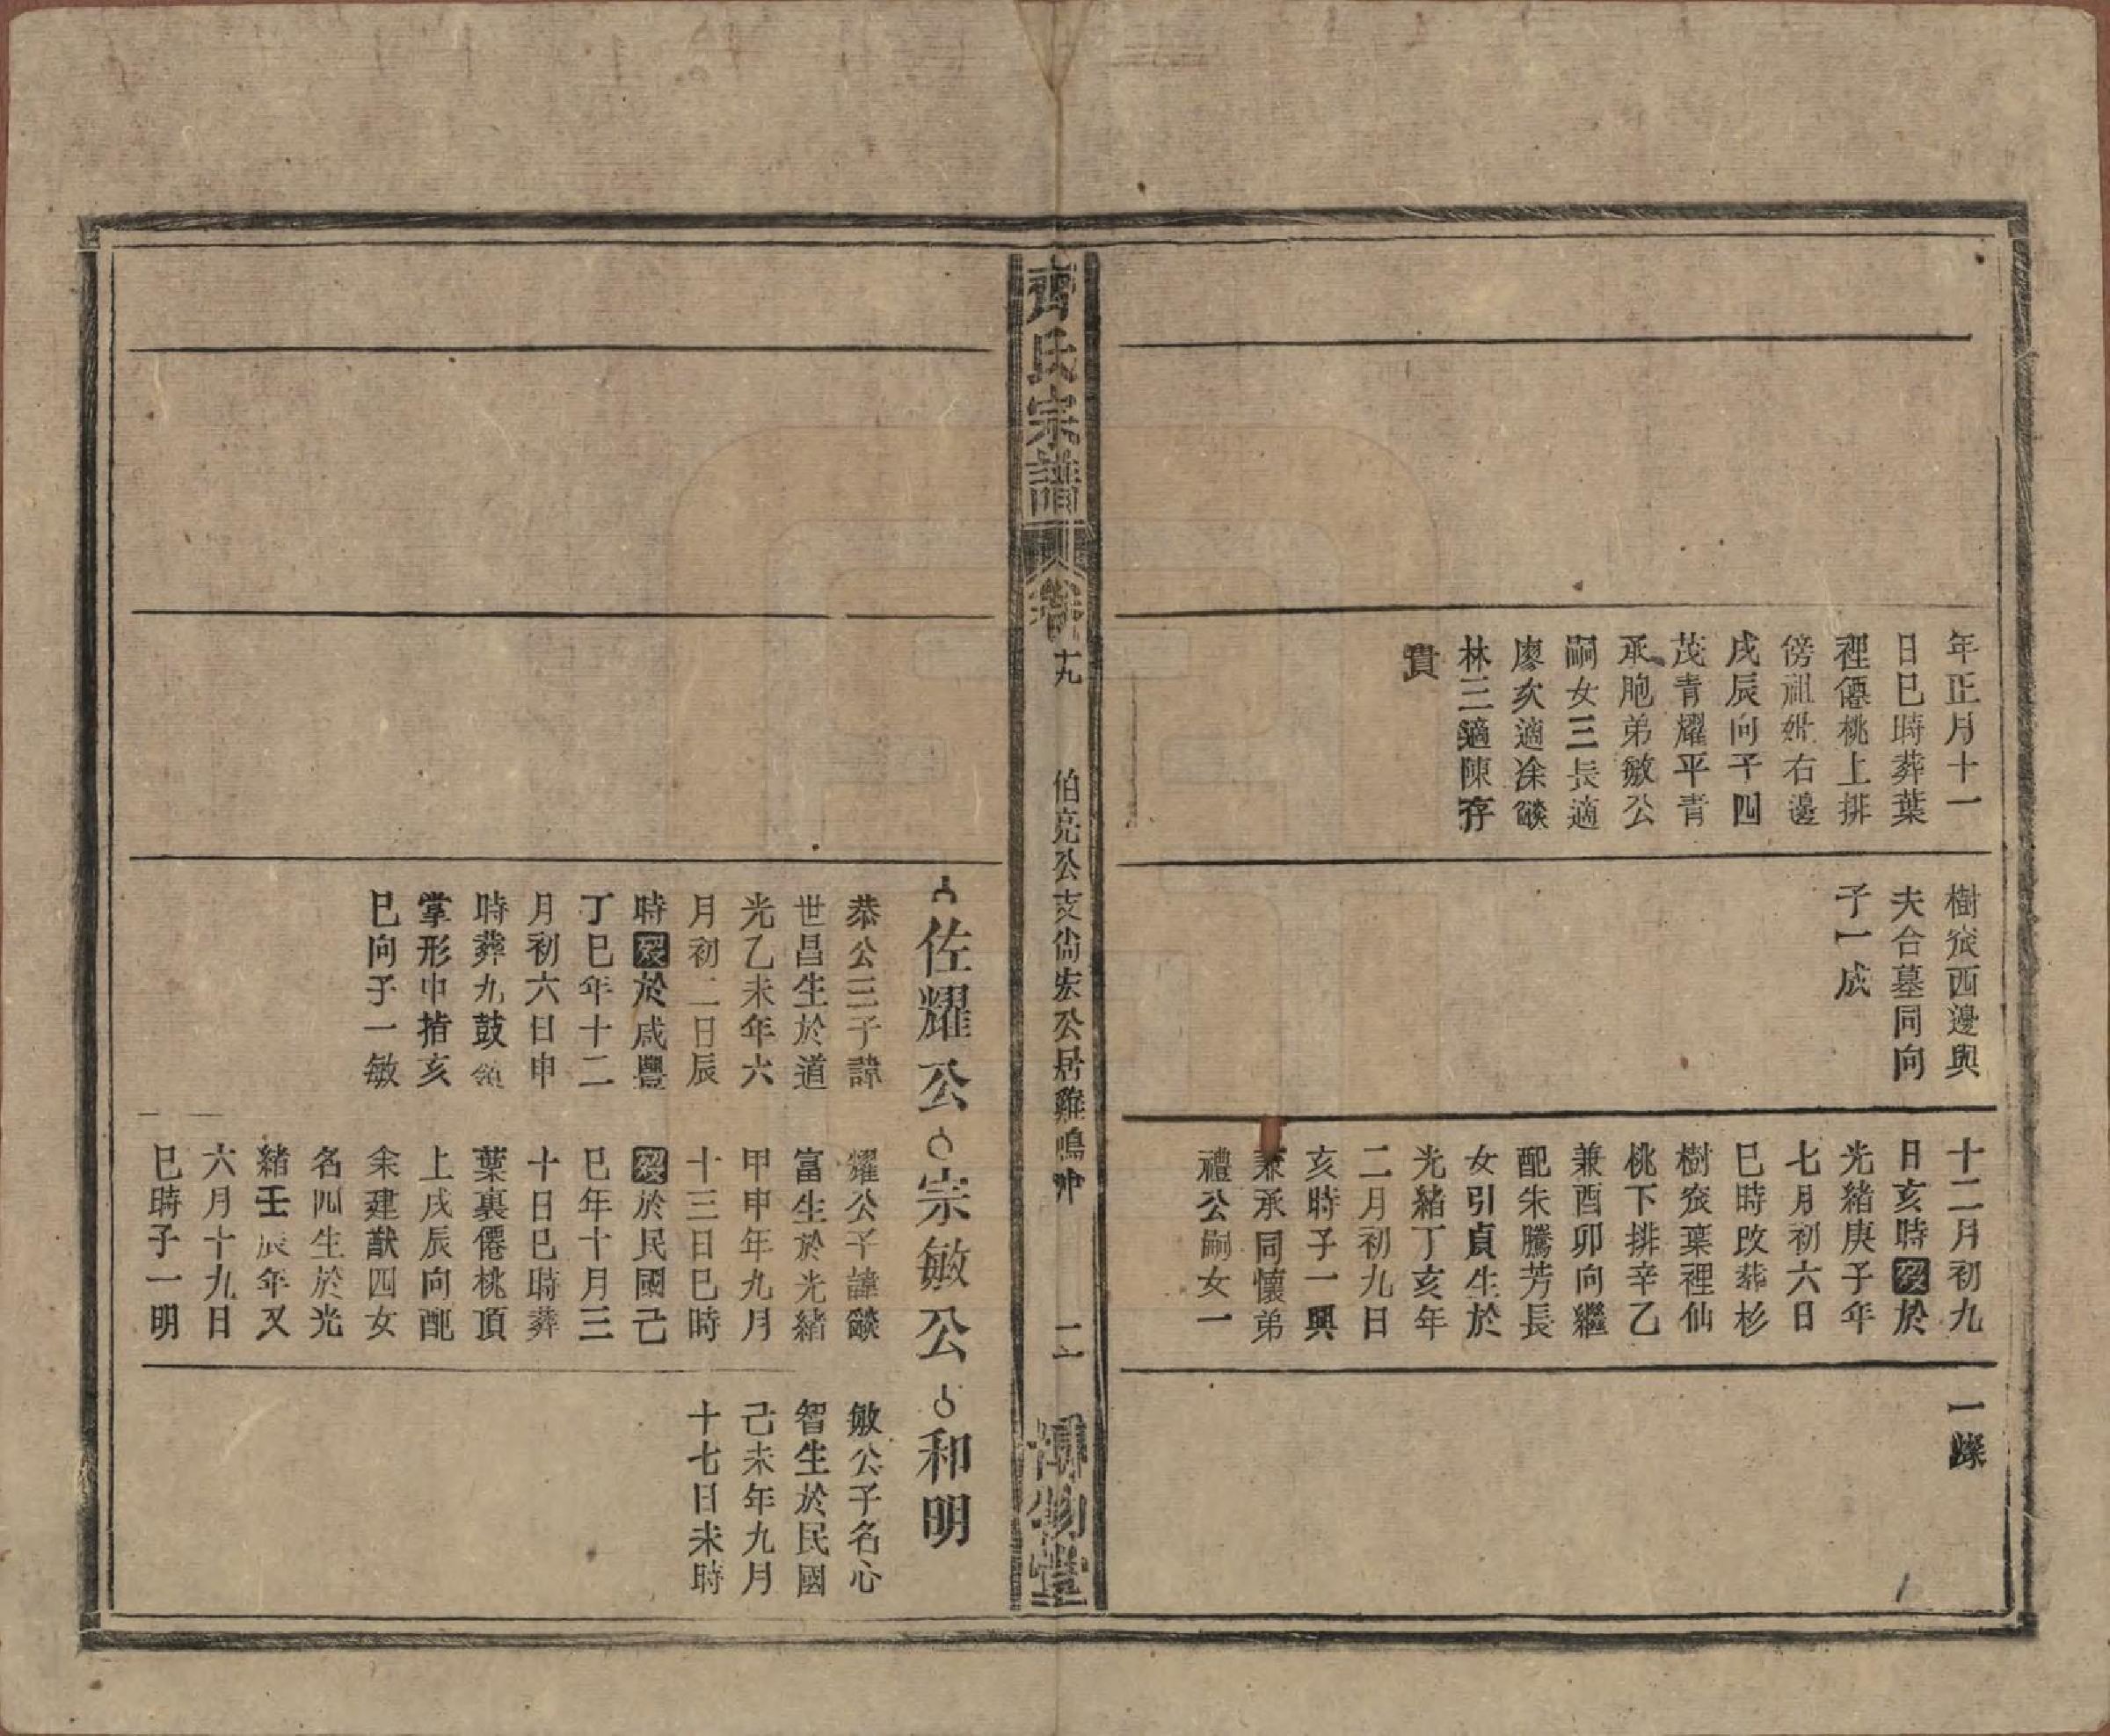 年正月十一
日巳時葬葉
裡僊桃上排
傍祖妣右邊
戌辰向子四
茂青耀平青
承胞弟敏公
嗣女三長適
廖次適涂燄
林三適陳存
貴
樹嶶西邊與
夫合墓同向
子一成
十二月初九
日亥時歿於
光緒庚子年
七月初六日
巳時改葬杉
樹嶶葉裡仙
桃下排辛乙
兼酉卯向繼
配朱騰芳長
女引貞生於
光緒丁亥年
二月初九日
亥時子一興
兼承同懷弟
禮公嗣女一
一燦
齊氏宗譜
卷十九
伯亮公支尚宏公居雞鳴冲
二
博物堂
佐耀公
恭公三子諱
世昌生於道
光乙未年六
月初二日辰
時歿於咸豐
丁巳年十二
月初六日申
時葬九鼓嶺
掌形中指亥
巳向子一敏
宗敏公
耀公子諱燄
富生於光緒
甲申年九月
十三日巳時
歿於民國己
巳年十月三
十日巳時葬
葉裏僊桃頂
上戌辰向配
余建猷四女
名四生於光
緒壬辰年又
六月十九日
巳時子一明
和明
敏公子名心
智生於民國
己未年九月
十七日未時